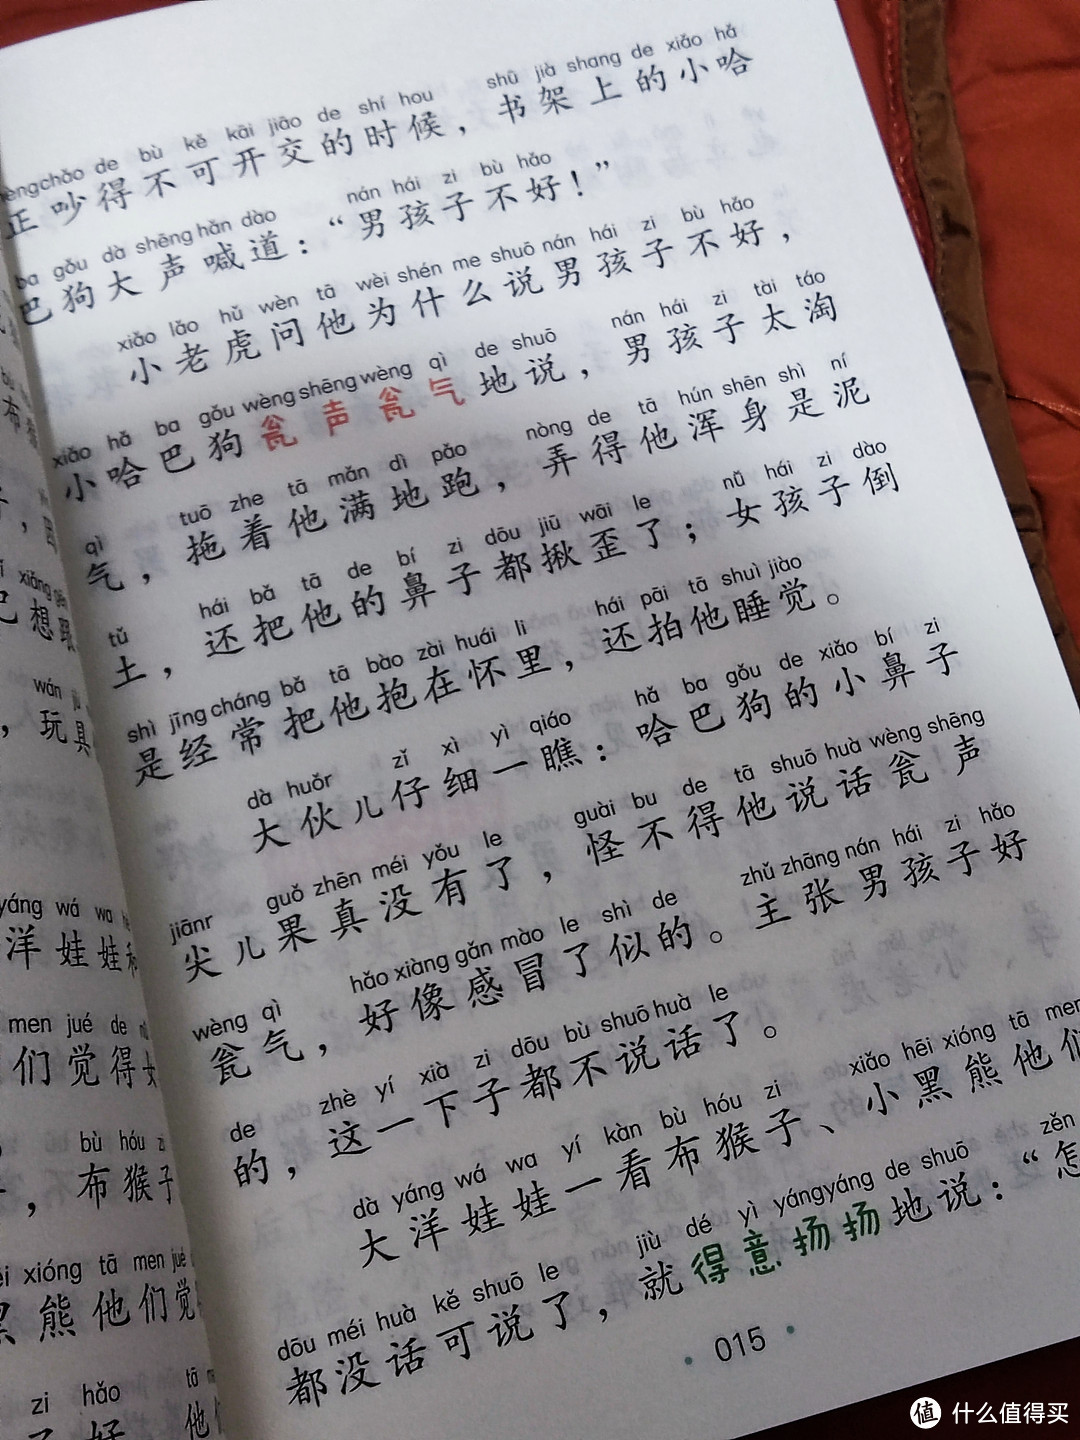 布
，因
xiǎng gēn
己想跟
wán jù
，玩具
yáng wá wa hé
洋娃娃和
men jué de nǚ
们觉得女
bù hóu zi
，布猴子
xióng tā men jué
黑熊他们觉
zi hǎo tā
子好 他
chǎo de bù kě kāi jiāo de shí hou shū jià shang de xiǎo hǎ
正吵得不可开交的时候，书架上的小哈
ba gǒu dà shēng hǎn dào nán hái zi bù hǎo
巴狗大声喊道：“男孩子不好！”
xiǎo lǎo hǔ wèn tā wèi shén me shuō nán hái zi bù hǎo
小老虎问他为什么说男孩子不好，
xiǎo hǎ ba gǒu wèng shēng wèng qì de shuō nán hái zi tài táo
小哈巴狗瓮声瓮气地说，男孩子太淘
qì tuō zhe tā mǎn dì pǎo nòng de tā hún shēn shì ní
气，拖着他满地跑，弄得他浑身是泥
tǔ hái bǎ tā de bí zi dōu jiū wāi le nǚ hái zi dào
土，还把他的鼻子都揪歪了；女孩子倒
shì jīng cháng bǎ tā bào zài huái li hái pāi tā shuì jiào
是经常把他抱在怀里，还拍他睡觉。
dà huǒr zǐ xì yì qiáo hǎ ba gǒu de xiǎo bí zi
大伙儿仔细一瞧：哈巴狗的小鼻子
jiānr guǒ zhēn méi yǒu le guài bu de tā shuō huà wèng shēng
尖儿果真没有了，怪不得他说话瓮声
wèng qì hǎo xiàng gǎn mào le shì de zhǔ zhāng nán hái zi hǎo
瓮气，好像感冒了似的。主张男孩子好
de zhè yí xià zi dōu bù shuō huà le
的，这一下子都不说话了。
dà yáng wá wa yí kàn bù hóu zi xiǎo hēi xióng tā men
大洋娃娃一看布猴子、小黑熊他们
dōu méi huà kě shuō le jiù dé yì yáng yáng de shuō zěn
都没话可说了，就得意扬扬地说：“怎
015
值 什么值得买